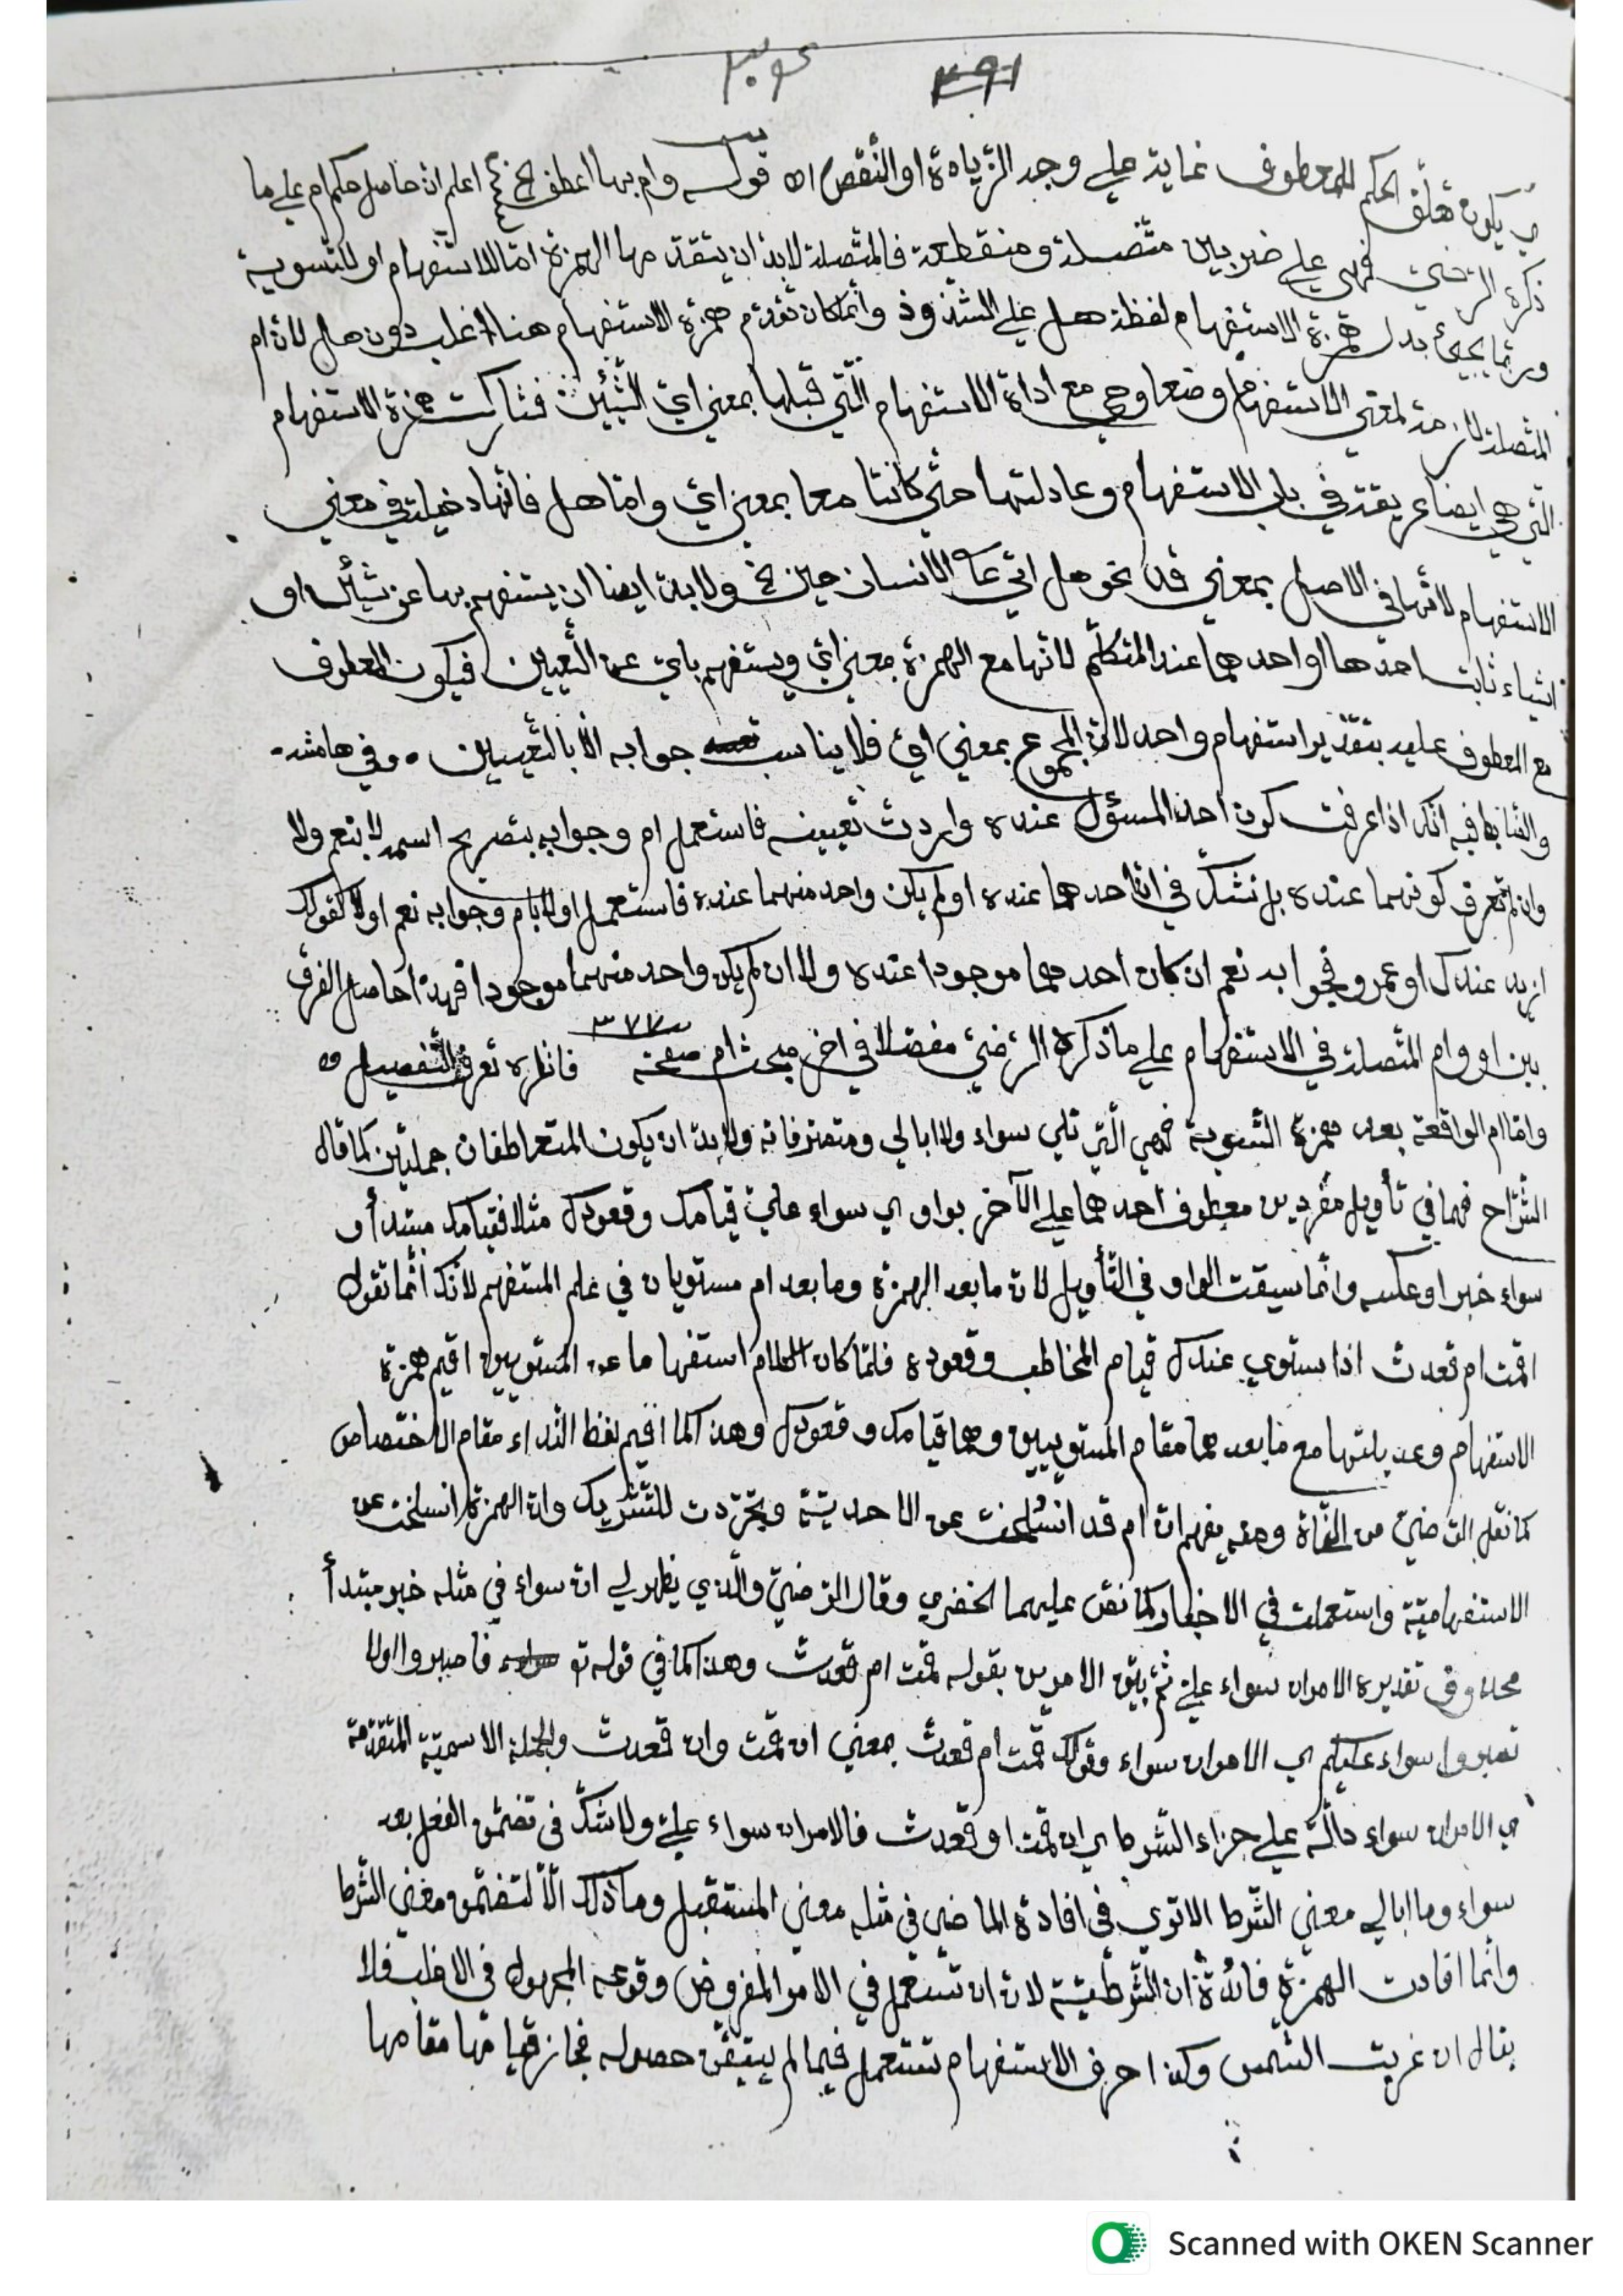 ٣٠٤ ٣٩١
ي يكون تعلق الحكم للمعطوف غاية على وجه الزيادة او النقص اه قوله وام بها اعطف الخ اعلم ان حاصل حكم ام على ما
ذكره الرضي فهي على ضربين متصلة ومنقطعة فالمتصلة لابد ان يتقدمها الهمزة امّا للاستفهام او للتسوية
وربّما يجيئ بدل همزة الاستفهام لفظة هل على الشذوذ وانّما كان تقدّم همزة الاستفهام هنا اغلب دون هل لانّ ام
المتصلة لازمة لمعنى الاستفهام وضعا وهي مع اداة الاستفهام الّتي قبلها بمعنى ايّ الشّيئين فشاركت همزة الاستفهام
التي هي ايضا عريقة في باب الاستفهام وعادلتها حتّى كانتا معا بمعنى ايّ وامّا هل فانّها دخيلة في معنى
الاستفهام لأنّها في الاصل بمعنى قد نحو هل اتى على الانسان حين الخ ولا بدّ ايضا ان يستفهم بها عن شيئين او
اشياء ثابت احدها او احدهما عند المتكلّم لانّها مع الهمزة بمعنى ايّ ويستفهم بايّ عن التّعيين فيكون المعطوف
مع المعطوف عليه بتقدير استفهام واحد لانّ المجموع بمعنى ايّ فلا يناسب جوابه الّا بالتّعيين ٠ وفي هامشه
فيه انّك اذا عرفت كون احد المسؤل عنده واردت تعيينه فاستعمل ام وجوابه بتصريح اسمه لا بنعم ولا
وان لم تعرف كونهما عنده بل تشكّ في انّ احدهما عنده او لم يكن واحد منهما عنده فاستعمل او لا بام وجوابه نعم او لا كقولك
ازيد عندك او عمرو فجوابه نعم ان كان احدهما موجودا عنده ولا ان لم يكن واحد منهما موجودا فهذا حاصل الفرق
بين او وام المتّصلة في الاستفهام على ما ذكره الرّضيّ مفصّلا في اخر مبحث ام صفحة ٣٧٧ فانظره تعرف التّفصيل اه
وامّا ام الواقعة بعد همزة التّسوية فهي الّتي تلي سواء ولا ابالي ومتصرفاته ولا بدّ ان يكون المتعاطفان جملتين كما قال
الشّرّاح فهما في تأويل مفردين معطوف احدهما على الآخر بواو اي سواء عليّ قيامك وقعودك مثلا فقيامك مبتدأ و
سواء خبر او عكسه وانّما سيقت الواو في التّأويل لانّ ما بعد الهمزة وما بعد ام مستويان في علم المستفهم لأنّك انّما تقول
اقمت ام قعدت اذا ستوى عندك قيام المخاطب وقعوده فلمّا كان الكلام استفهاما عن المستويين اقيم همزة
الاستفهام وعديلتها مع ما بعدهما مقام المستويين وهما قيامك وقعودك وهذا كما اقيم لفظ النّداء مقام الاختصاص
كما نقل الرّضيّ من النّحاة ومنه يفهم انّ ام قد انسلخت عن الاحديّة وتجرّدت للتّشريك وانّ الهمزة انسلخت عن
الاستفهاميّة واستعملت في الاخبار كما نصّ عليهما الخضري وقال الرّضيّ والّذي يظهر لي انّ سواء في مثله خبر مبتدأ
محذوف تقديره الامران سواء عليّ ثم بيّن الامرين بقوله قمت ام قعدت وهذا كما في قوله تع فاصبروا اولا
تصبروا سواء عليكم اي الامران سواء وقولك قمت ام قعدت بمعنى ان قمت وان قعدت والجملة الاسميّة المتقدّمة
اي الامران سواء دالّة على جزاء الشّرط اي ان قمت او قعدت فالامران سواء عليّ ولا شكّ في تضمّن الفعل بعد
سواء وما ابالي معنى الشّرط الا ترى في افادة الماضي في مثله معنى المستقبل وما ذلك الّا لتضمّن معنى الشّرط
وانّما افادت الهمزة فائدة ان الشّرطيّة لانّ ان تستعمل في الامر المفروض وقوعه المجهول في الاغلب فلا
يقال ان غربت الشّمس وكذا حرف الاستفهام تستعمل فيما لم يتيقّن حصوله فجاز قيامها مقامها
Scanned with OKEN Scanner